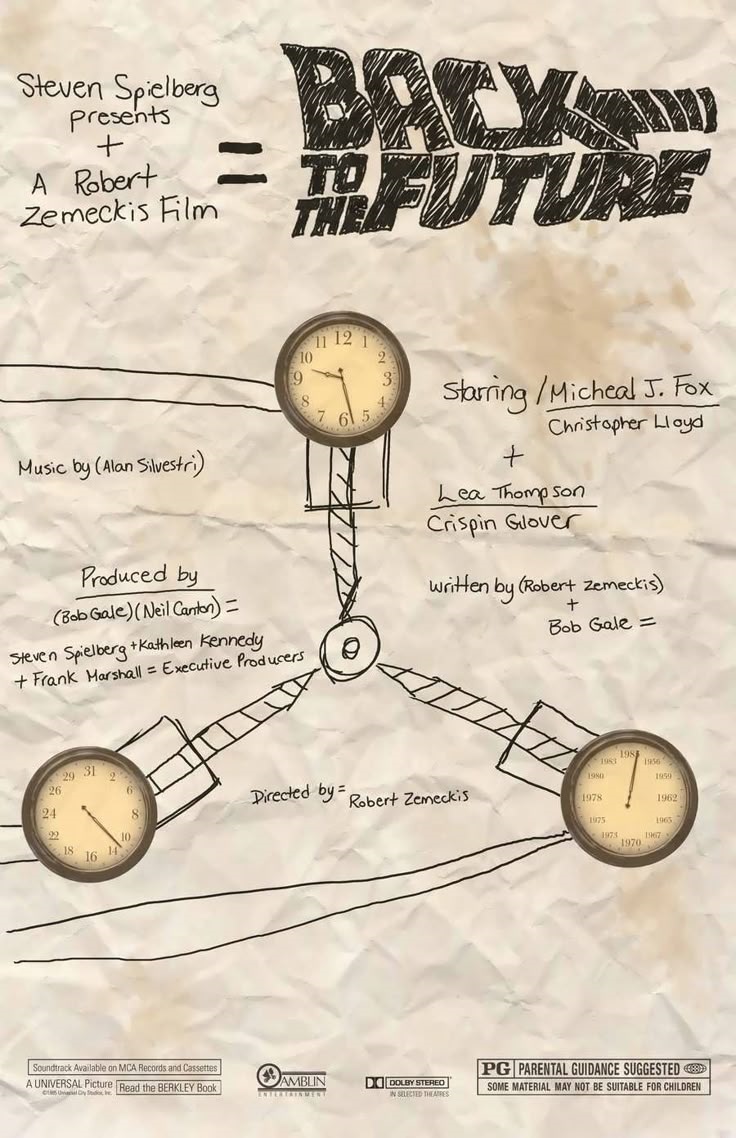 Steven Spielberg
presents
+
A Robert
Zemeckis Film
=
BACK
TO THE FUTURE
11 12 1
10 2
9 3
8 4
7 6 5
Starring / Micheal J. Fox
Christopher Lloyd
+
Lea Thompson
Crispin Glover
Music by (Alan Silvestri)
Produced by
(Bob Gale) (Neil Canton) =
Steven Spielberg + Kathleen Kennedy
+ Frank Marshall = Executive Producers
Written by (Robert Zemeckis)
+
Bob Gale =
Directed by = Robert Zemeckis
29 31 2
26 6
24 8
22 10
18 16 14
1983 1985 1956
1980 1959
1978 1962
1975 1965
1973 1970 1967
Soundtrack Available on MCA Records and Cassettes
A UNIVERSAL Picture
©1985 Universal City Studios, Inc.
Read the BERKLEY Book
AMBLIN
ENTERTAINMENT
DOLBY STEREO
IN SELECTED THEATRES
PG PARENTAL GUIDANCE SUGGESTED
SOME MATERIAL MAY NOT BE SUITABLE FOR CHILDREN